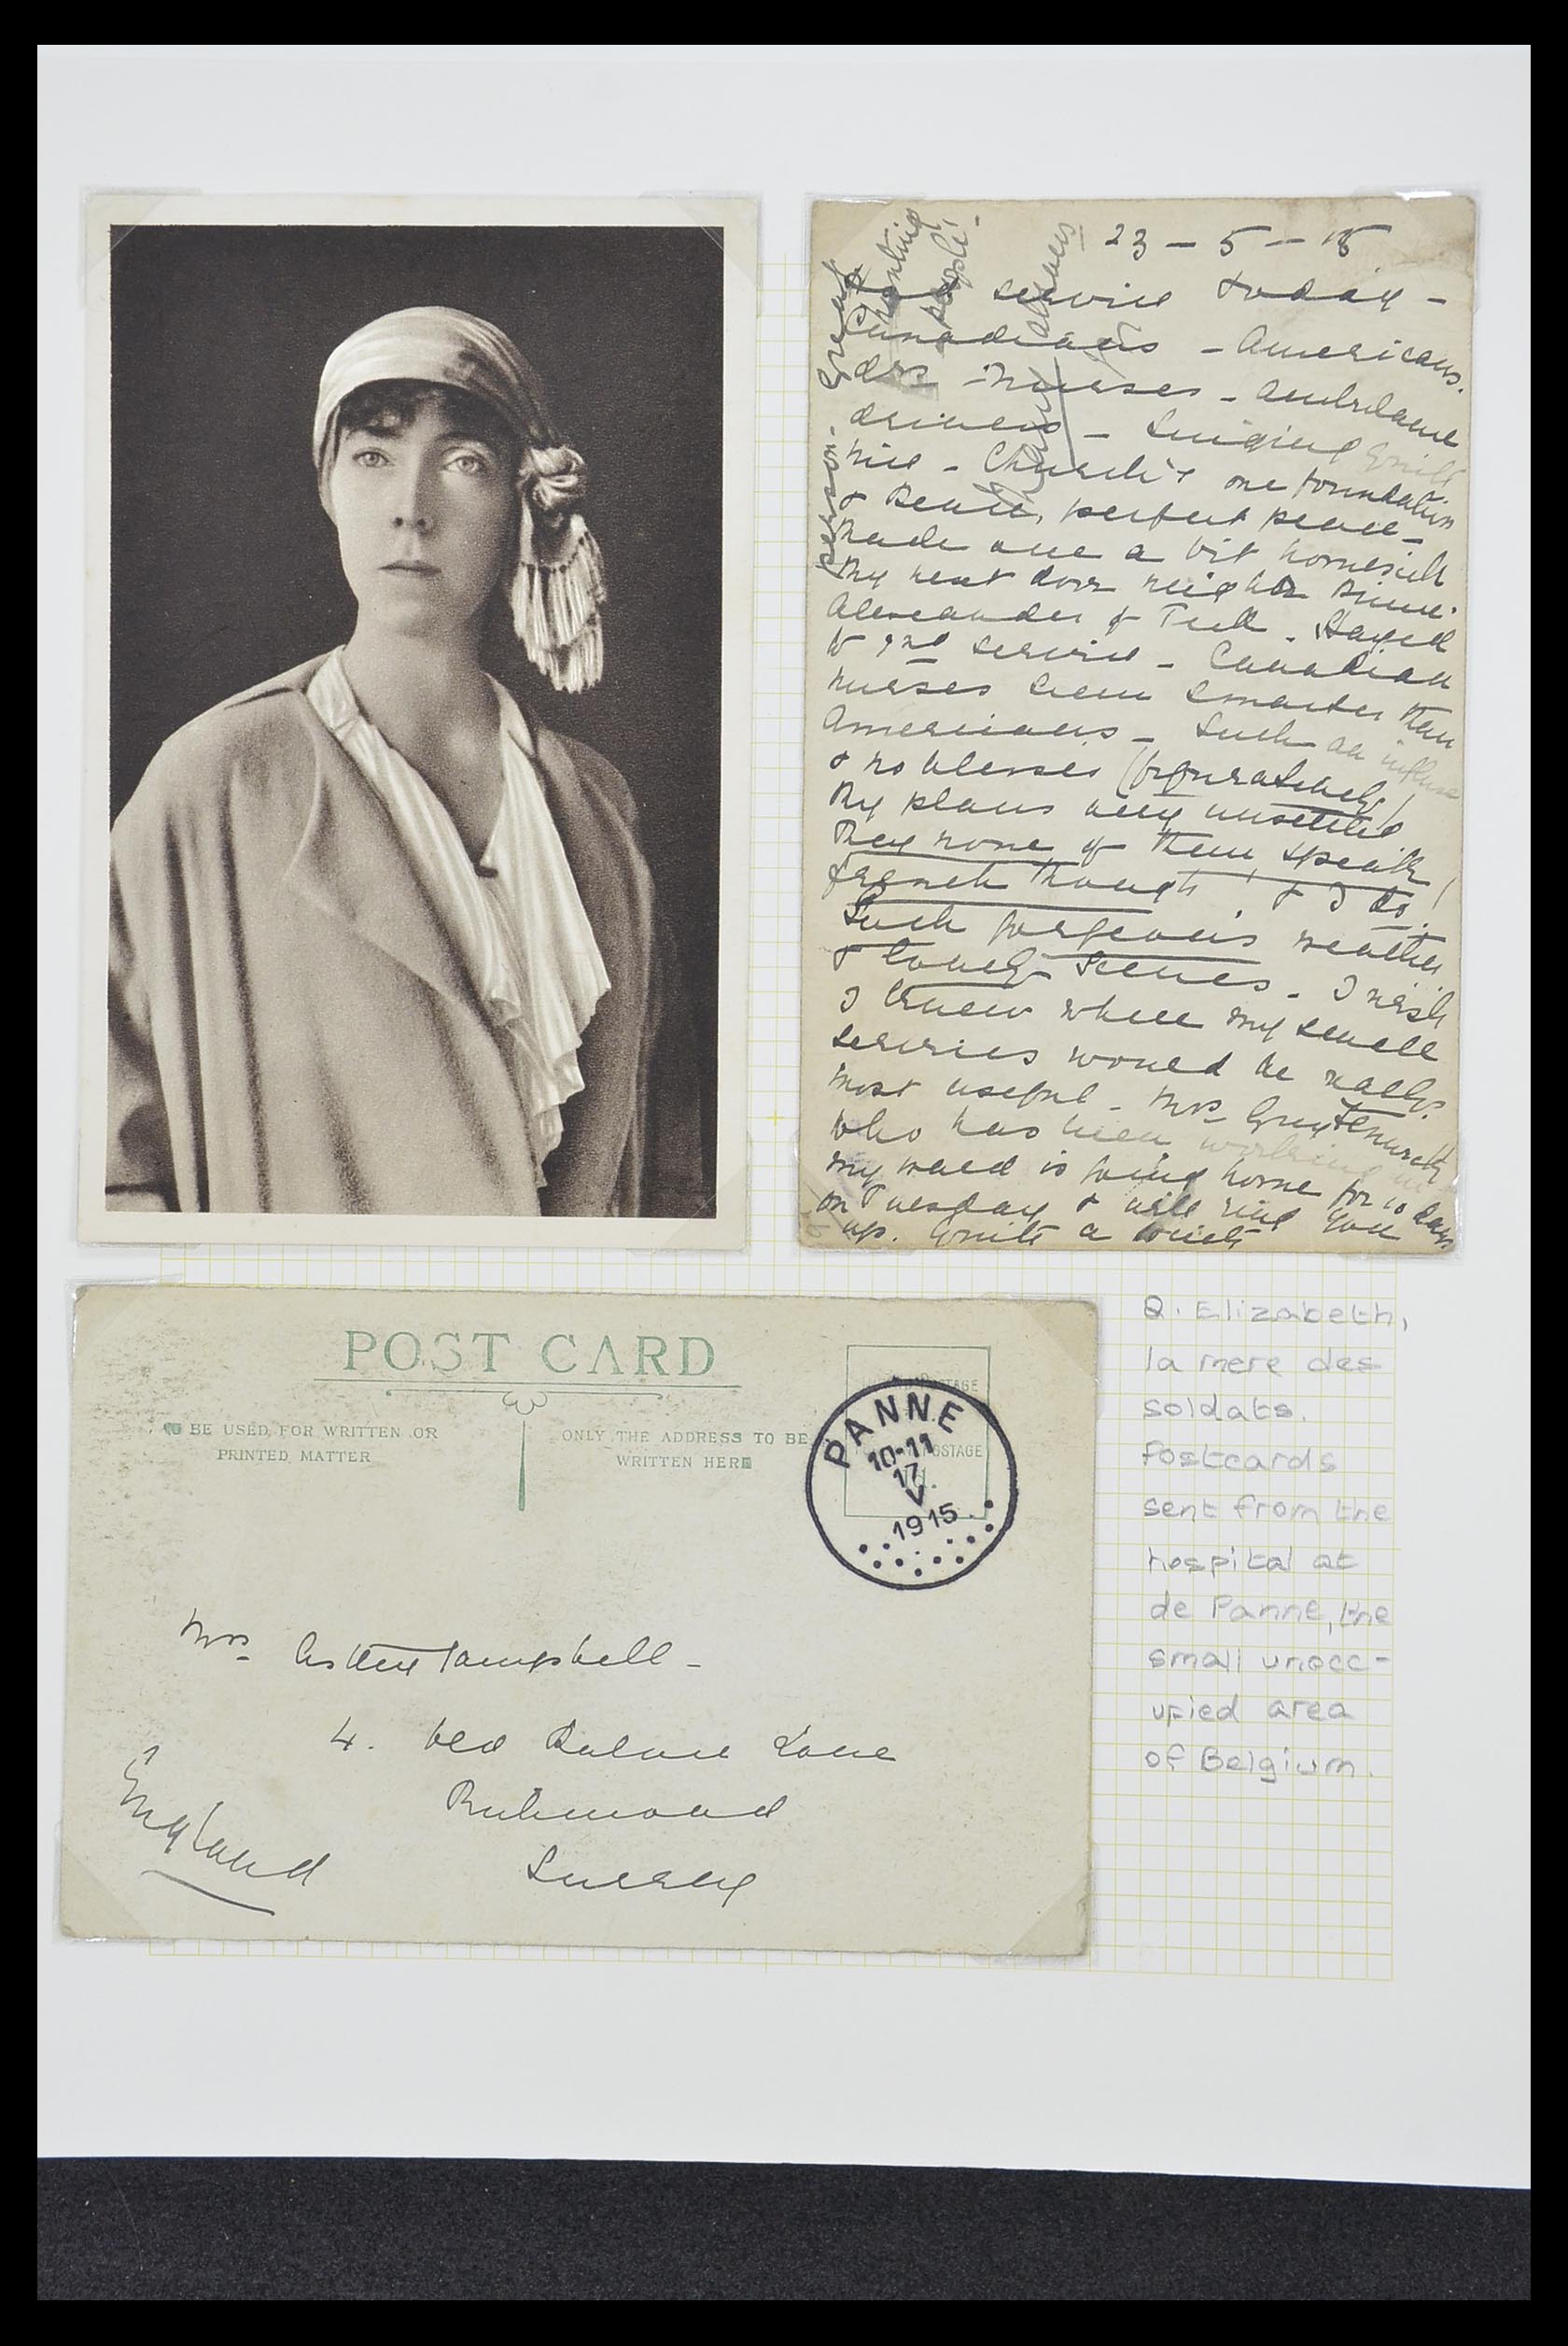 23 – 5 – 15
service today –
Canadians – Americans.
drs – nurses – ambulance
drivers – Singing quite
nice – Church's one foundation
& Peace, perfect peace –
Made one a bit homesick
My next door neighbor Prince
Alexander of Teck. Stayed
to 2nd service – Canadian
nurses seem smarter than
Americans – Such an
& no blesses (figuratively)
My plans very unsettled
They none of them speak
french though! & I do!
Such gorgeous weather
& lovely scenes. I wish
I knew where my small
services would be really
most useful – Mrs
who has been working in
my ward is going home for 10 days
on Tuesday & will ring you
up. Quite a
great
person.
people.
always
POST CARD
TO BE USED FOR WRITTEN OR
PRINTED MATTER
ONLY THE ADDRESS TO BE
WRITTEN HERE
POSTAGE
POSTAGE
PANNE
10-11
17
V
1915
Mrs Campbell –
4. Old Palace Lane
Richmond
Surrey
England
Q. Elizabeth,
la mere des
soldats.
Postcards
sent from the
hospital at
de Panne, the
small unocc-
upied area
of Belgium.